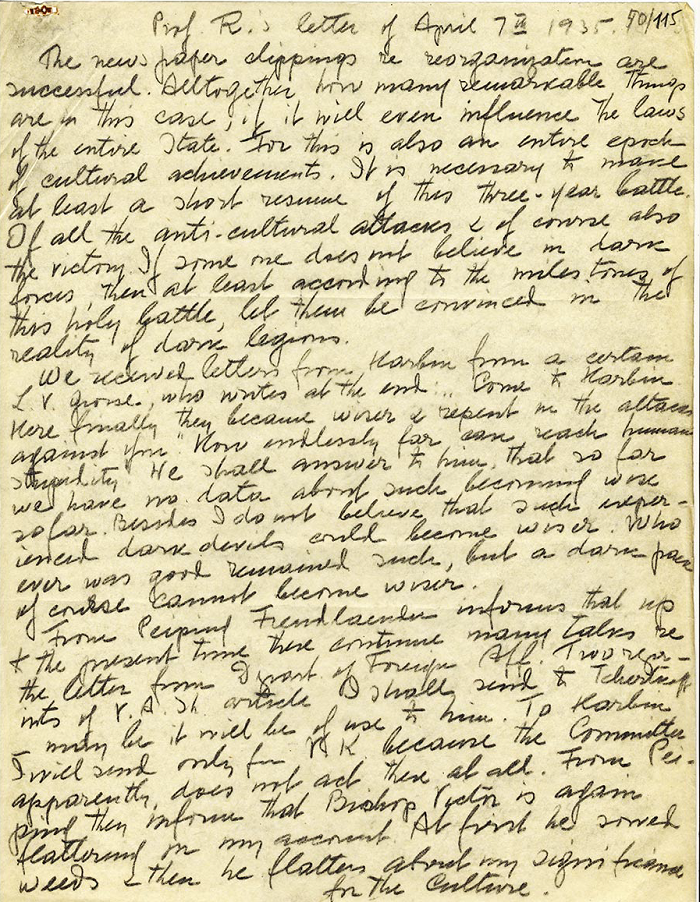 Prof. R.'s letter of April 7th 1935. 70/115
The newspaper clippings re reorganization are
successful. Alltogether how many remarkable things
are in this case, if it will even influence the laws
of the entire State. For this is also an entire epoch
of cultural achievements. It is necessary to make
at least a short resume of this three-year battle.
Of all the anti-cultural attacks & of course also
the victory. If some one does not believe in dark
forces, then at least according to the milestones of
this holy battle, let them be convinced in the
reality of dark legions.
We received letters from Harbin from a certain
L. V. who writes at the end: "Come to Harbin
Here finally they became wiser & repent in the attacks
against you" How endlessly far can reach human
stupidity. We shall answer to him, that so far
we have no data about such becoming wise
so far. Besides I do not believe that such exper-
ienced dark devils could become wiser. Who
ever was good remained such, but a dark
of course cannot become wiser.
From Peiping Frendlaender informs that up
to the present time there continue many talks re
the letter from Depart. of Foreign Aff. Two repr-
ints of V. A. Sh. article I shall send to
- may be it will be of use to him. To Harbin
I will send only for V K because the Committee
apparently, does not act there at all. From Pei-
ping they inform that Bishop Victor is again
flattering on my account. At first he sowed
weeds & then he flatters about my significance
for the Culture.